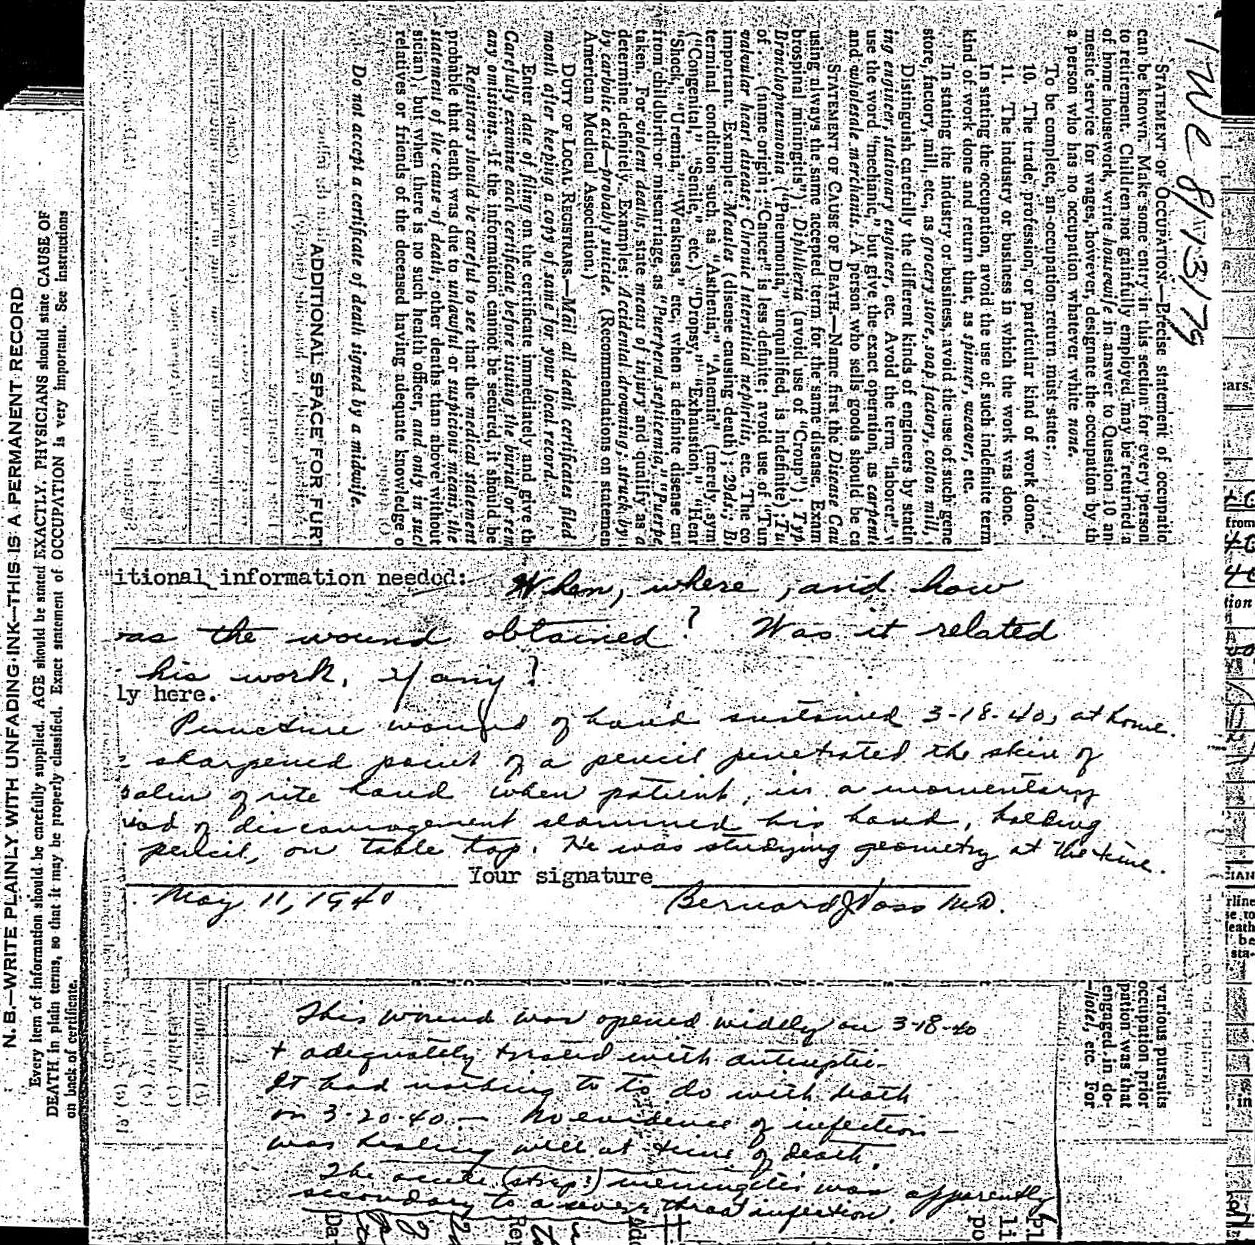 1We 8/13/79
STATEMENT OF OCCUPATION.—Precise statement of occupatio
can be known. Make some entry in this section for every person
to retirement. Children not gainfully employed may be returned a
of home housework, write housewife in answer to Question 10 an
mestic service for wages, however, designate the occupation by th
a person who has no occupation whatever write none.
To be complete, an occupation return must state:
10. The trade, profession, or particular kind of work done.
11. The industry or business in which the work was done.
In stating the occupation, avoid the use of such indefinite term
kind of work done and return that, as spinner, weaver, etc.
In stating the industry or business, avoid the use of such gene
store, factory, mill, etc., as grocery store, soap factory, cotton mill,
Distinguish carefully the different kinds of engineers by statin
ing engineer, stationary engineer, etc. Avoid the term "laborer" w
use the word "mechanic," but give the exact operation, as carpent
and wholesale merchants. A person who sells goods should be ca
STATEMENT OF CAUSE OF DEATH.—Name first the Disease Cau
using always the same accepted term for the same disease. Exam
brospinal miningitis"); Diphtheria (avoid use of "Croup"); Typ
Bronchopneumonia ("Pneumonia," unqualified, is indefinite); Tu
of . . . (name origin; "Cancer" is less definite; avoid use of "Tun
valvular heart disease; Chronic interstitial nephritis, etc. The co
important. Example: Measles (disease causing death); 29ds.; B
terminal condition such as "Asthenia," "Anemia" (merely sym
("Congenital," "Senile," etc.) "Dropsy," "Exhaustion," "Hear
"Shock," "Uremia," "Weakness," etc, when a definite disease ca
from childbirth or miscarriage, as "Puerperal septicemia," "Puerpe
taken. For violent deaths, state means of injury and qualify as a
determine definitely. Examples: Accidental drowning; struck by
by carbolic acid—probably suicide. (Recommendations on statemen
American Medical Association.)
DUTY OF LOCAL REGISTRARS.—Mail all death certificates filed
month after keeping a copy of same for your local record.
Enter date of filing on the certificate immediately and give th
Carefully examine each certificate before issuing the burial or rem
any omissions. If the information cannot be secured, it should be
Registrars should be careful to see that the medical statement
probable that death was due to unlawful or suspicious means, the
statement of the cause of death; other deaths than above without
sician), but when there is no such health officer, and only in such
relatives or friends of the deceased having adequate knowledge o
Do not accept a certificate of death signed by a midwife.
ADDITIONAL SPACE FOR FURT
N. B.—WRITE PLAINLY WITH UNFADING INK—THIS IS A PERMANENT RECORD
Every item of information should be carefully supplied. AGE should be stated EXACTLY. PHYSICIANS should state CAUSE OF
DEATH in plain terms, so that it may be properly classified. Exact statement of OCCUPATION is very important. See instructions
on back of certificate.
itional information needed: When, where, and how
was the wound obtained? Was it related
his work, if any?
ly here.
Puncture wound of hand sustained 3-18-40, at home.
sharpened point of a pencil penetrated the skin of
palm of rite hand when patient, in a momentary
of discouragement slammed his hand, holding
pencil, on table top. He was studying geometry at the time.
Your signature
May 11, 1940 Bernard J Voss M.D.
This wound was opened widely on 3-18-40
+ adequately treated with antiseptic-
It had nothing to to do with death
on 3-20-40.— No evidence of infection—
was healing well at time of death.
The acute (strep?) meningitis was apparently
secondary to a severe throat infection.
various pursuits
occupation prior
pation was that
engaged in do-
—hotel, etc. For